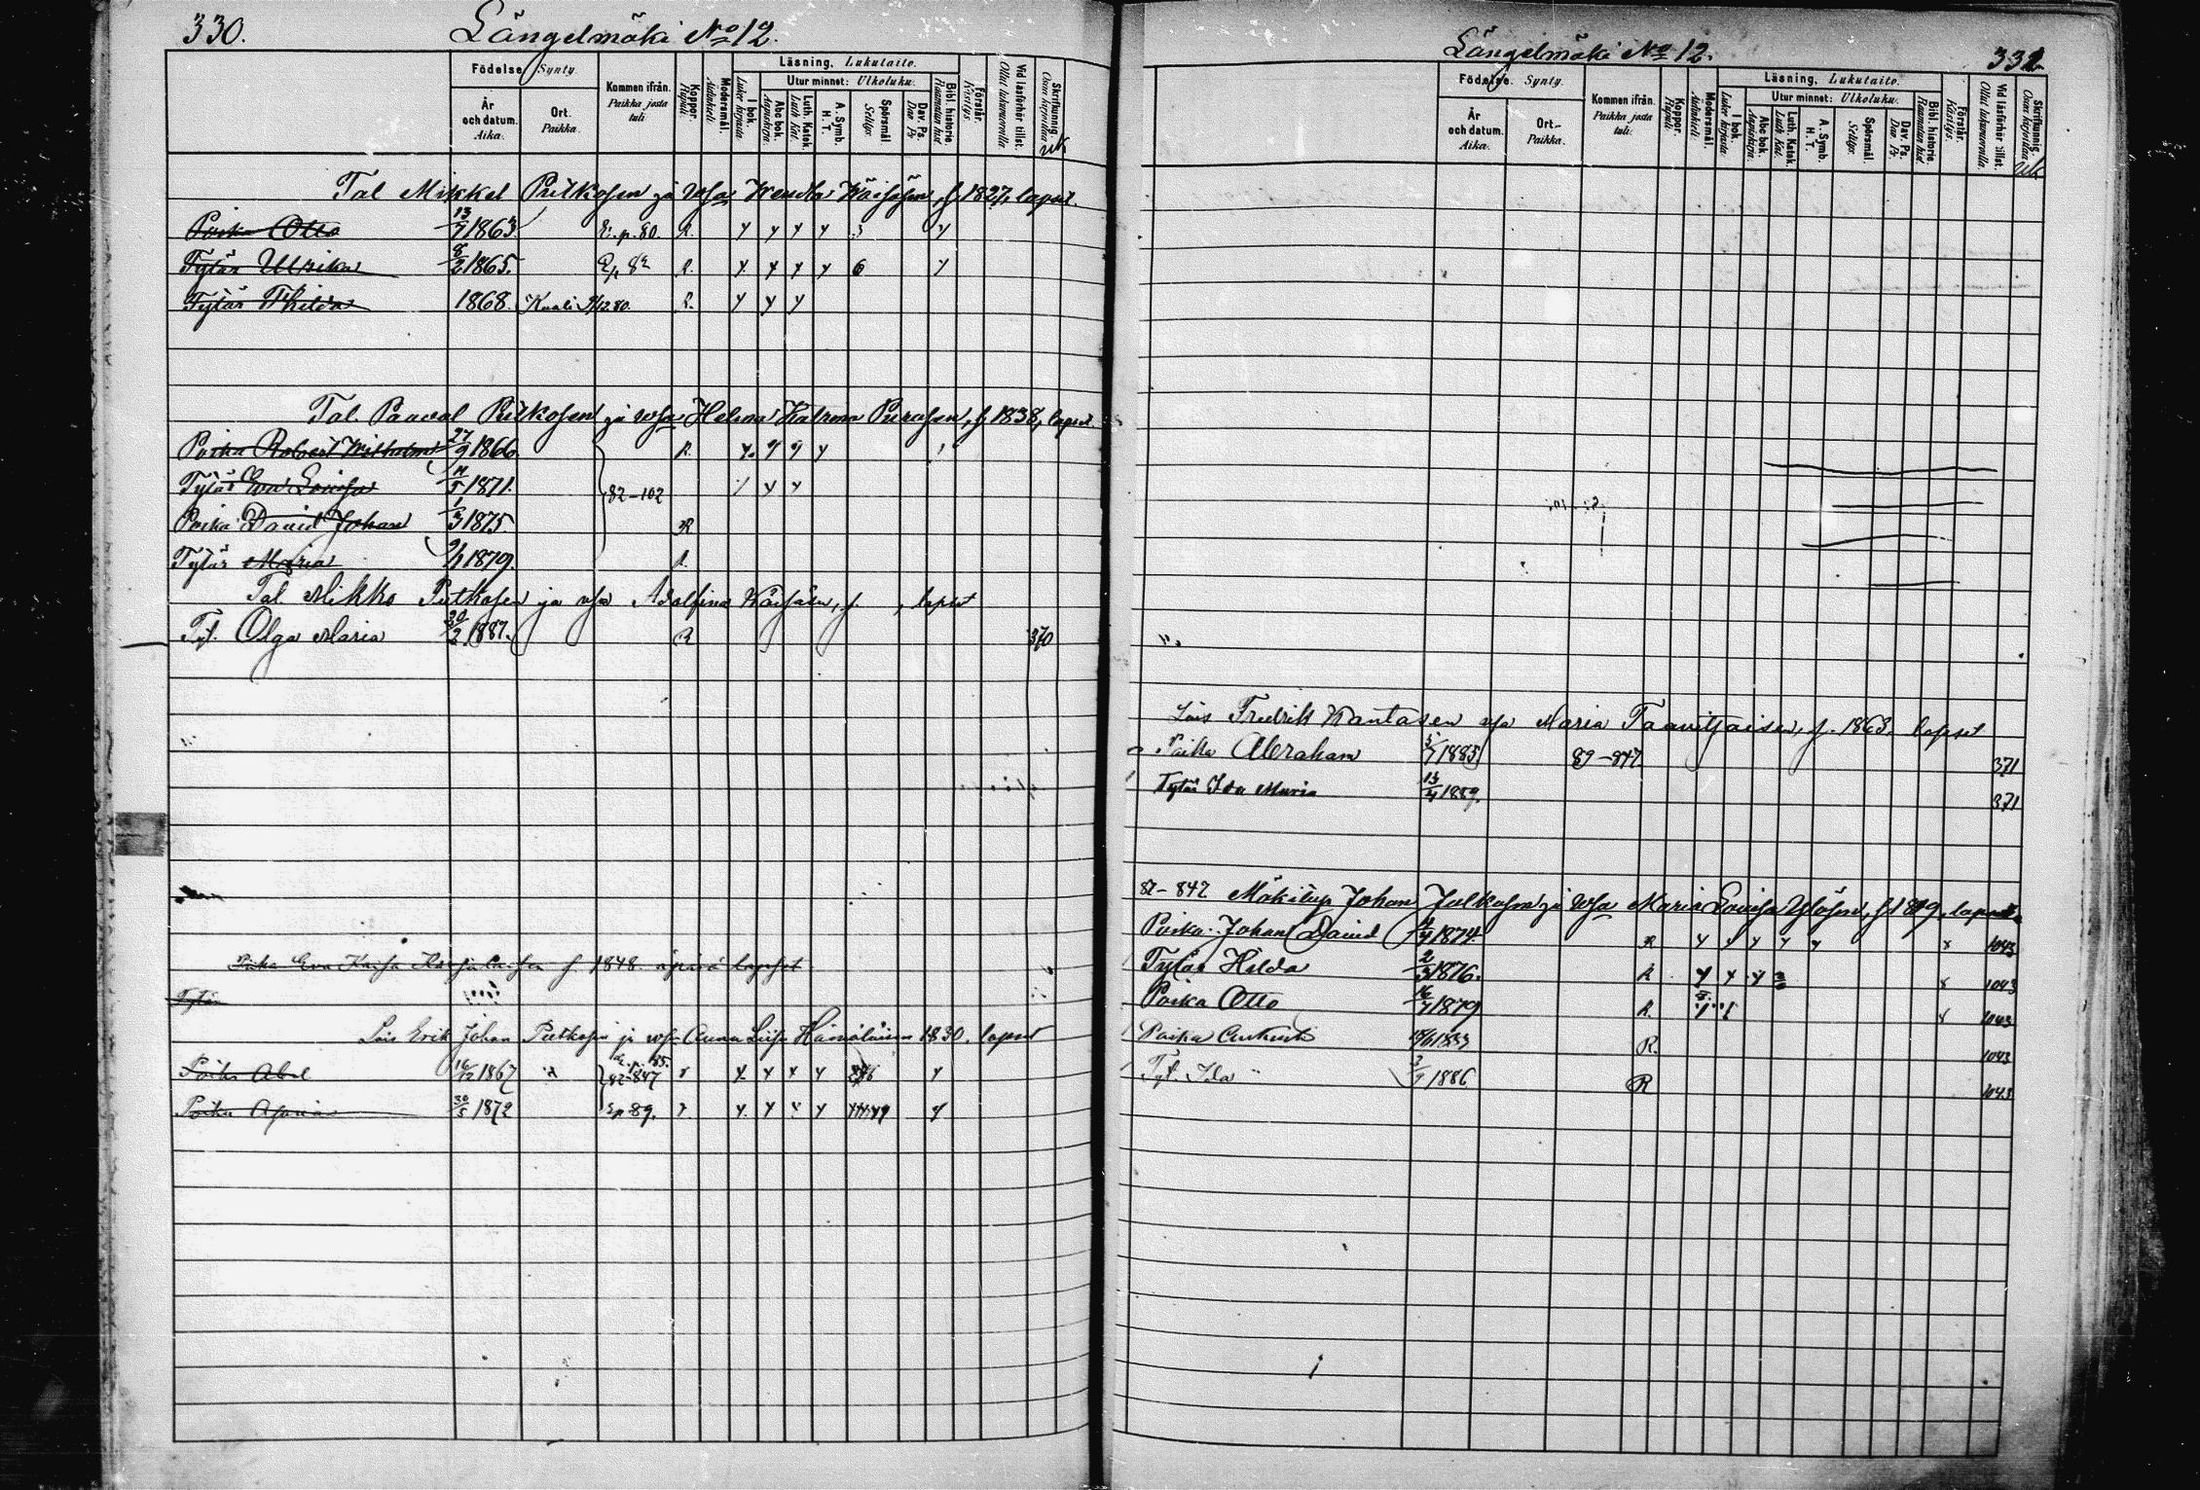 330. Längelmäki No 12.
Födelse Synty
Kommen ifrån.
Paikka josta tuli
Koppor. Rupuli
Modersmål. Äidinkieli
Läsning, Lukutaito.
Utur minnet: Ulkoluku.
I bok. Luku kirjasta
Abc bok. Aapiskirja.
Luth. Katek. Luth Kat.
A. Symb. H. T.
Spörsmål Selitys.
Dav. Ps. Dav. Ps
Bibl. historie. Raamatun hist
Förstår. Käsitys.
Vid läsförhör tillst. Ollut lukuvuorolla
Skrifkunnig. Osaa kirjoittaa
År och datum. Aika.
Ort. Paikka.
Tal Mikkel Putkosen ja Wsa Wendla Wäisäsen, f. 1827, lapset.
Poika Otto 13/7 1863 E. p. 80. R.
Tytär Ulrika 8/2 1865. Ep 82 R. 6
Tytär Thilda 1868. Kuoli 9/12 80. R.
Tal. Paaval Putkosen ja wsa Helena Katrina Purasen, f. 1838, lapset
Poika Robert Wilhelm 27/9 1866 R.
Tytär Eva Lovisa 11/5 1871. 82-102
Poika David Johan 1/3 1875 R
Tytär Maria 9/1 1879.
Tal Mikko Putkosen ja wsa Adolfina Wäisäsen, f. , lapset
Tyt. Olga Maria 20/2 1887. R 370
1848. äpärä lapset
Tytär
Lois Erik Johan Putkosen ja wsa Anna Liisa Hämäläisen 1830. lapset
Poika Abel 1867 82-847
Poika 30/5 1872 Ep 89.
Längelmäki No 12. 331
Födelse. Synty.
Kommen ifrån.
Paikka josta tuli:
Koppor. Rupuli
Modersmål. Äidinkieli
Läsning, Lukutaito.
Utur minnet: Ulkoluku.
I bok. Luku kirjasta
Abc bok. Aapiskirja.
Luth. Katek. Luth Kat.
A. Symb. H. T.
Spörsmål Selitys.
Dav. Ps. Dav. Ps
Bibl. historie Raamatun hist
Förstår. Käsitys.
Vid läsförhör tillst. Ollut lukuvuorolla
Skrifkunnig. Osaa kirjoittaa
År och datum. Aika.
Ort. Paikka.
Lois Fredrik Wäntäsen wsa Maria Taavitsaisen, f. 1863. lapset
Poika Abraham 5/7 1885 89-847 371
Tytär Ida Maria 13/4 1889. 371
87-847 Mäkitup Johan Jalkasen ja Wsa Maria Lovisa Ylösen, f. 1849, lapset
Poika Johan David 1874. R 1043
Tytär Hilda 2/3 1876. R 1043
Poika Otto 16/7 1879 R. 1043
Poika 1883 R. 1043
Tyt. Ida 3/9 1886 R 1043